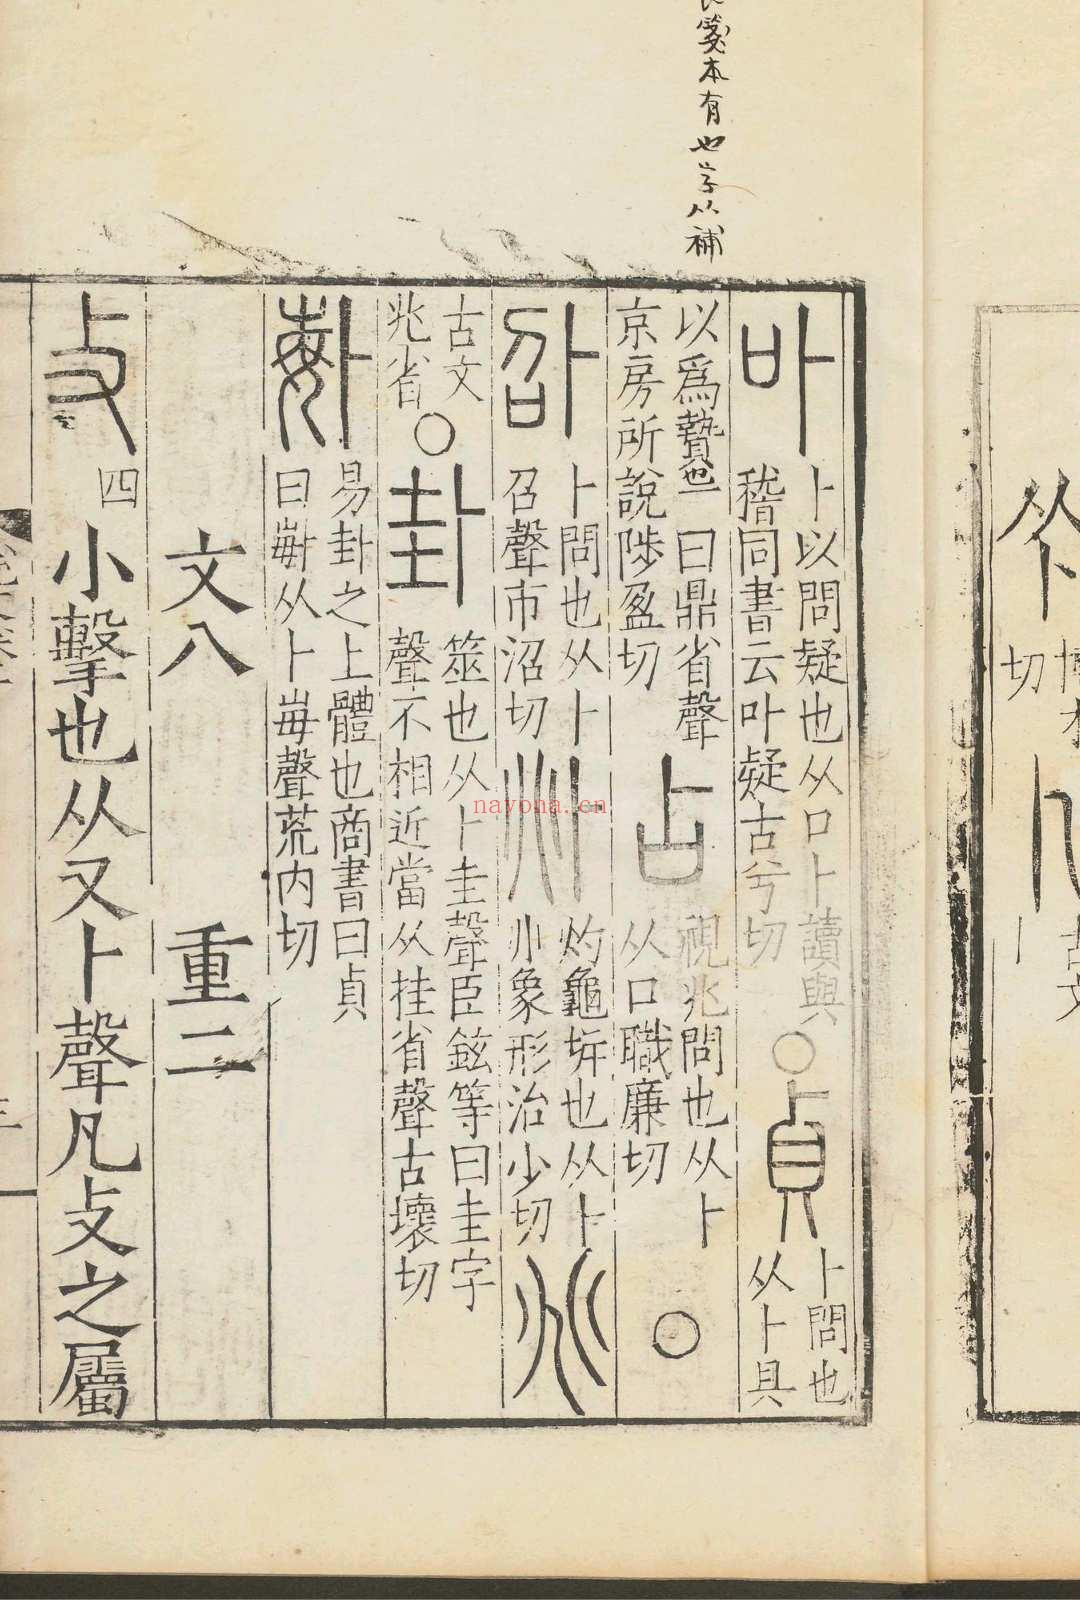 箋本有也字以補
卟 卜以問疑也从口卜讀與
稽同書云卟疑古兮切
○貞 卜問也
从卜貝
以爲贄一曰鼎省聲
京房所說陟盈切
占 視兆問也从卜
从口職廉切
○
卲 卜問也从卜
召聲市沼切
𠧞 灼龜坼也从卜
兆象形治少切
兆
古文
兆省
○卦 筮也从卜圭聲臣鉉等曰圭字
聲不相近當从挂省聲古壞切
𠧩 易卦之上體也商書曰貞
曰𠧩从卜每聲荒内切
文八 重二
攴 小擊也从又卜聲凡攴之屬
四
切
古文
nayona.cn